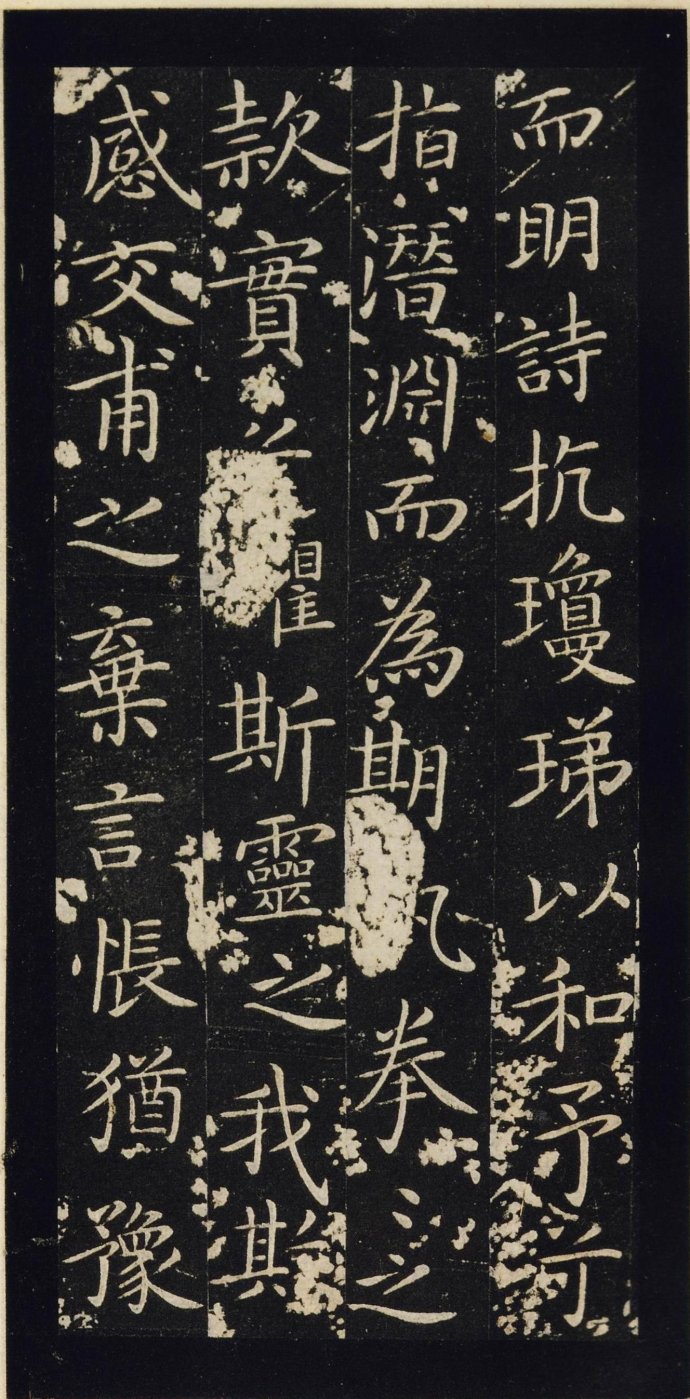 而明詩抗瓊珶以和予兮
指潛淵而為期拳〻之
款實兮懼斯靈之我欺
感交甫之棄言悵猶豫